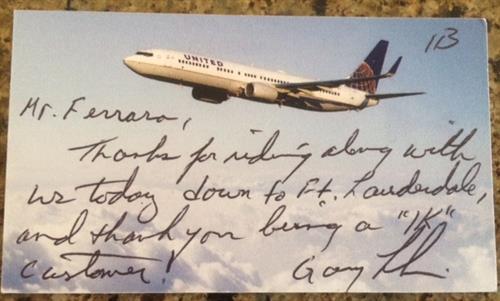 1B
UNITED
Mr. Ferraro,
Thanks for riding along with
us today down to Ft. Lauderdale,
and thank you being a "1K"
customer! Gary